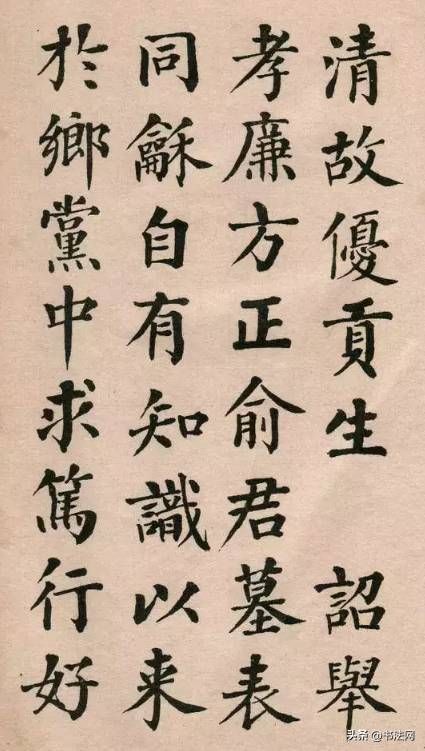 清故優貢生 詔舉
孝廉方正俞君墓表
同龢自有知識以来
於鄉黨中求篤行好
头条 @书法网